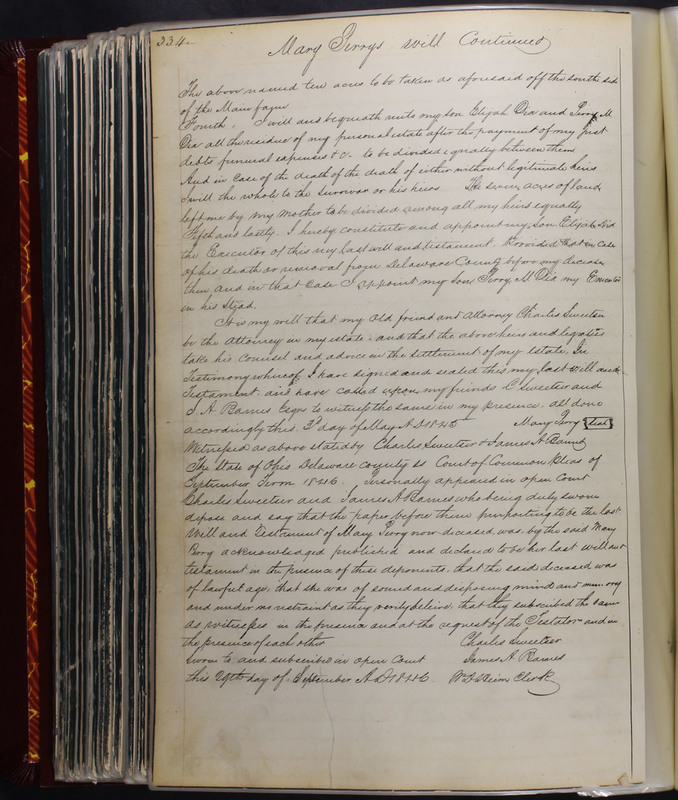 334
Mary Perrys Will Continued
The above named ten acres to be taken as aforesaid off the south side
of the Main farm
Fourth. I will and bequeath unto my son Elijah Dix and Perry M
Dix all the residue of my personal estate after the payment of my just
debts funeral expenses &c. to be divided equally between them
And in case of the death of the death of either without legitimate heirs
I will the whole to the survivor or his heirs The seven acres of land
left me by my Mother to be divided among all my heirs equally
Fifth and lastly. I hereby constitute and appoint my son Elijah Dix
the Executor of this my last will and testament. Provided that in case
of his death or removal from Delaware County before my decease
then and in that case I appoint my son Perry M Dix my Executor
in his Stead.
It is my will that my old friend and Attorney Charles Sweetser
be the Attorney in my estate, and that the above heirs and legatees
take his Counsel and advice in the settlement of my estate. In
Testimony whereof, I have signed and sealed this my last will and
Testament. and have called upon my friends C Sweetser and
J. A. Barnes Esqrs to witness the same in my presence. all done
accordingly this 2d day of May A.D 1845 Mary Perry Seal
Witnessed as above stated by Charles Sweetser & James A Barnes
The State of Ohio Delaware County ss Court of Common Pleas of
September Term 1846. Personally appeared in open Court
Charles Sweetser and James A Barnes who being duly sworn
depose and say that the paper before them purporting to be the last
Will and Testament of Mary Perry now deceased, was, by the said Mary
Perry acknowledged published and declared to be her last will and
testament in the presence of these deponents. that the said deceased was
of lawful age, that she was of sound and disposing mind and memory
and under no restraint as they verily believe. that they subscribed the same
as witnesses in the presence and at the request of the Testator and in
the presence of each other Charles Sweetser
Sworn to and subscribed in open Court James A. Barnes
this 29th day of September A.D 1846 Clerk